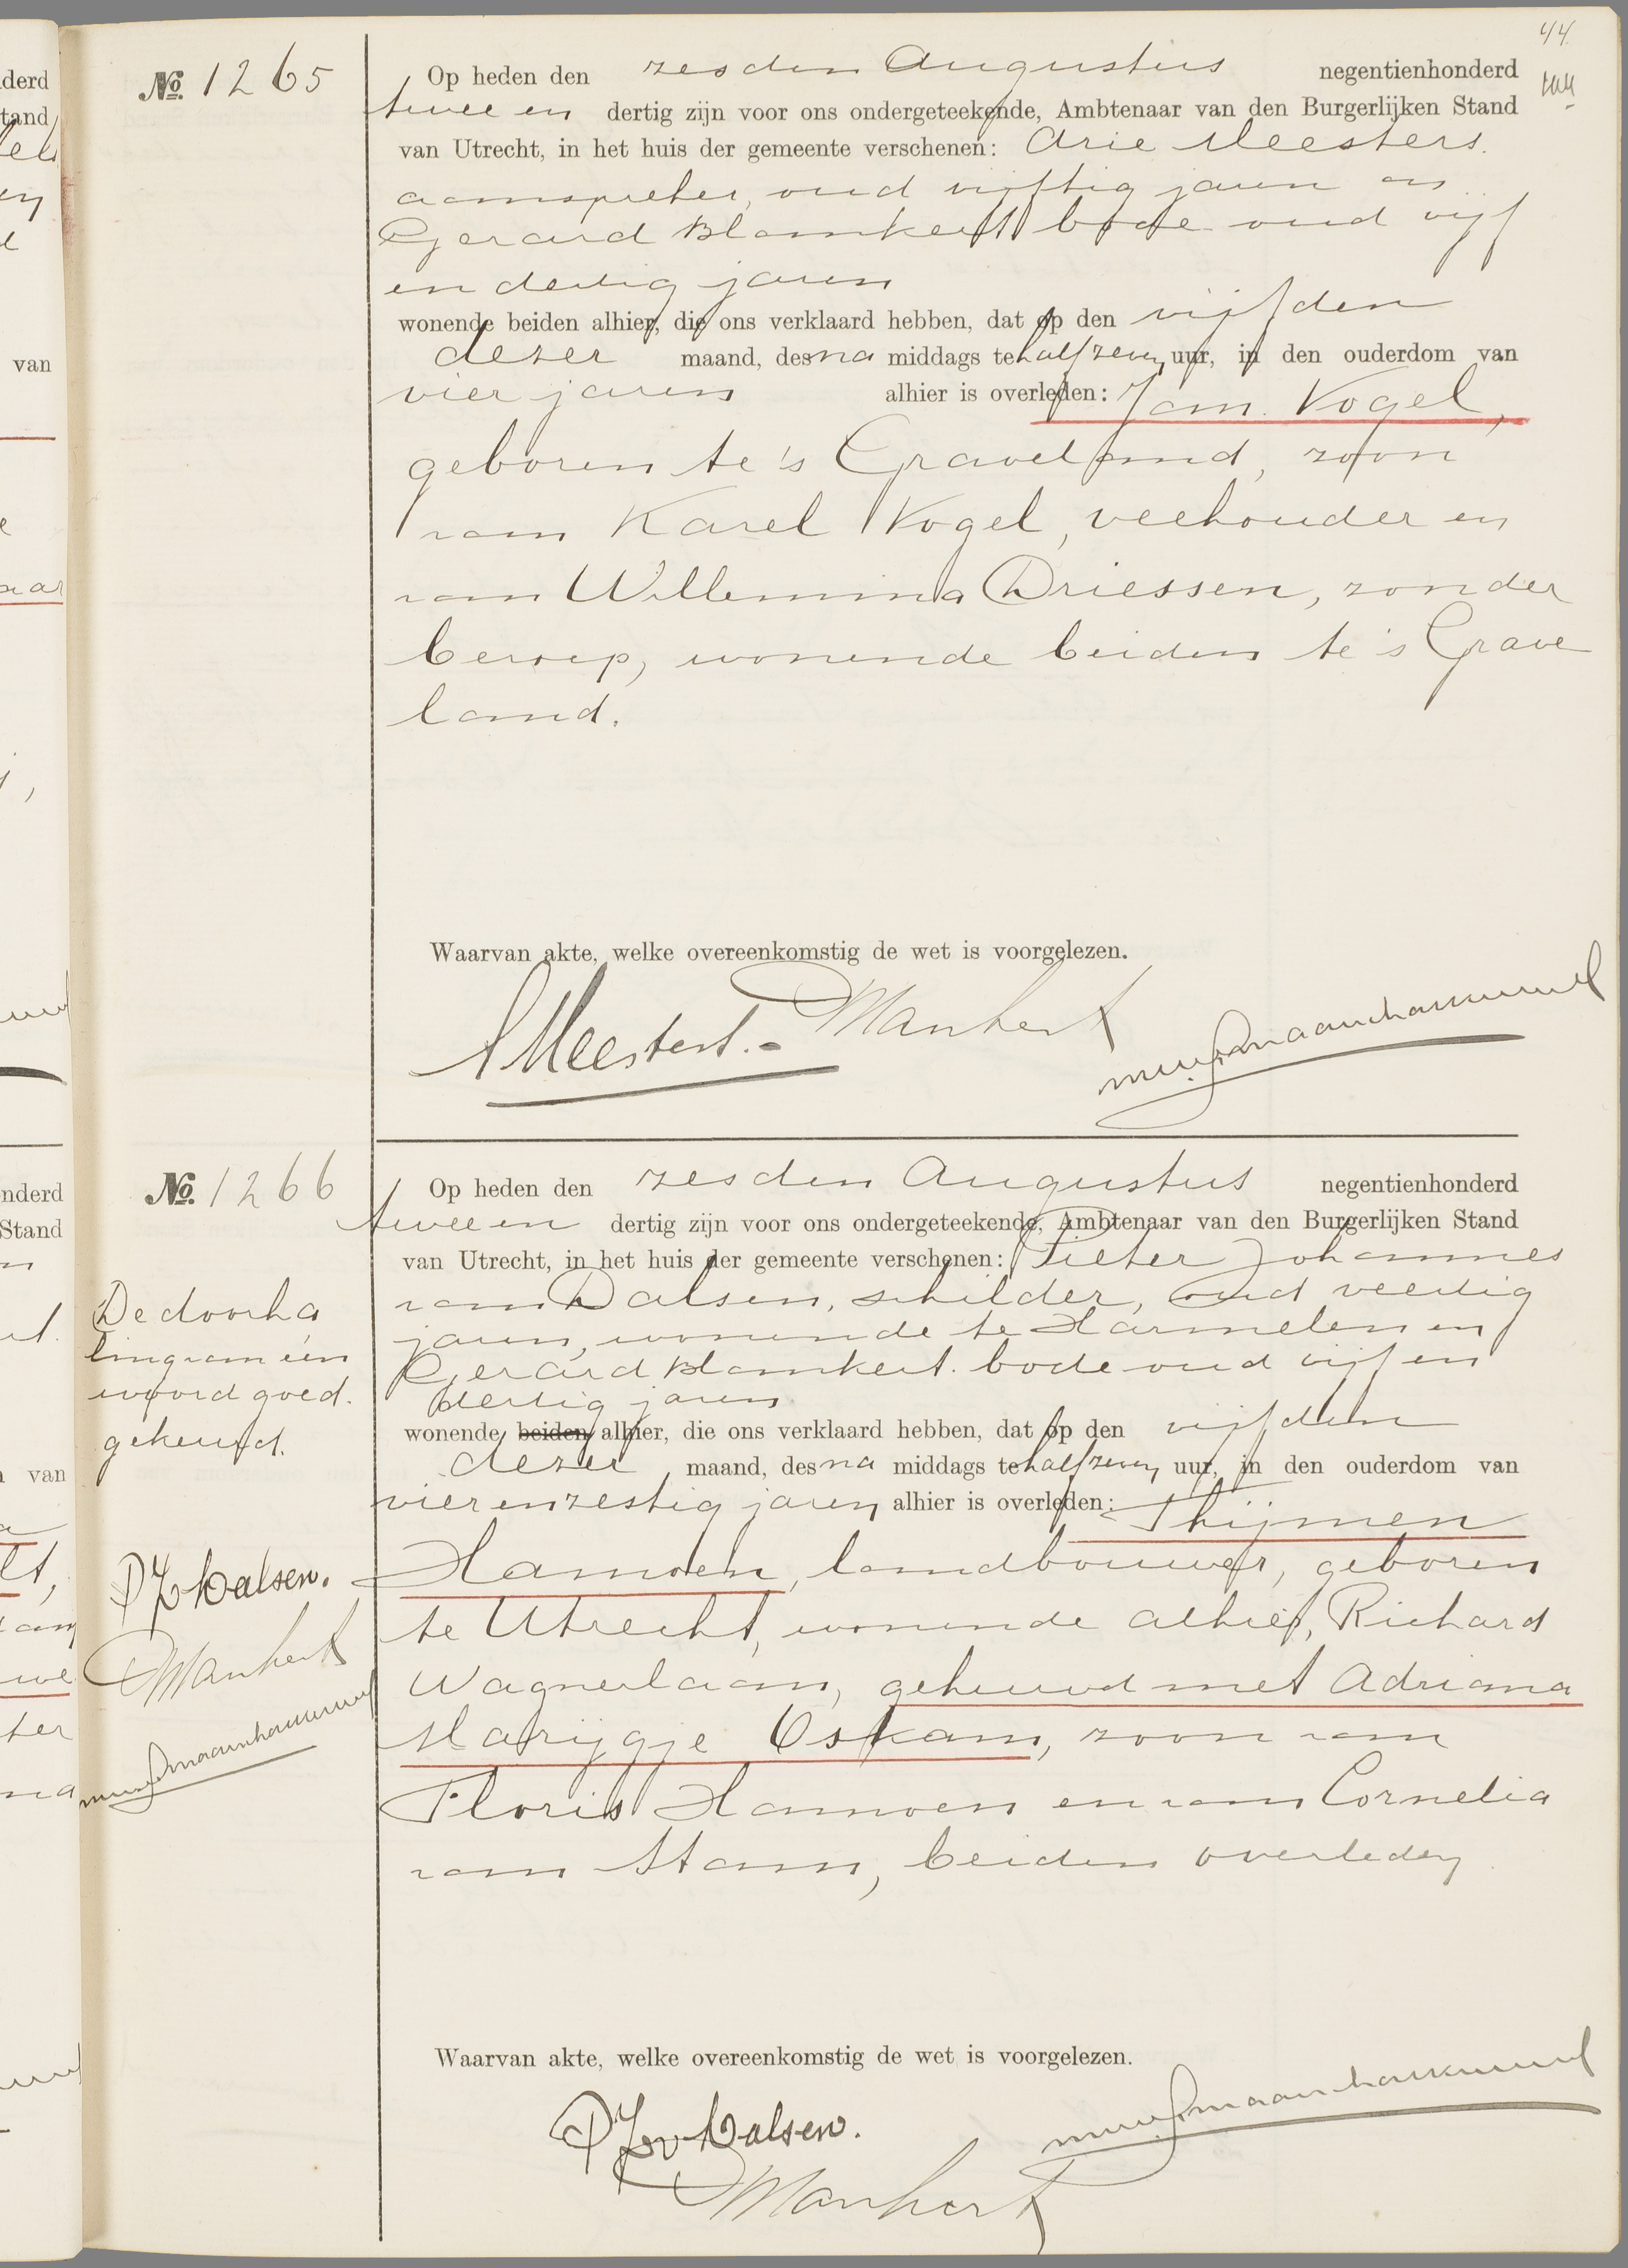 44
No. 1265
Op heden den zesden Augustus negentienhonderd
twee en dertig zijn voor ons ondergeteekende, Ambtenaar van den Burgerlijken Stand
van Utrecht, in het huis der gemeente verschenen: Arie Meesters
aanspreker, oud vijftig jaren en
Gerard Blankert bode oud vijf
en dertig jaren
wonende beiden alhier, die ons verklaard hebben, dat op den vijfden
dezer maand, des na middags te half zeven uur, in den ouderdom van
vier jaren alhier is overleden: Jan Vogel,
geboren te 's Graveland, zoon
van Karel Vogel, veehouder en
van Willemina Driessen, zonder
beroep, wonende beiden te 's Grave
land.
Waarvan akte, welke overeenkomstig de wet is voorgelezen.
A Meesters.
Blankert
No. 1266
Op heden den zesden Augustus negentienhonderd
twee en dertig zijn voor ons ondergeteekende, Ambtenaar van den Burgerlijken Stand
van Utrecht, in het huis der gemeente verschenen: Pieter Johannes
van Dalsen, schilder, oud veertig
jaren, wonende te Harmelen en
Gerard Blankert bode oud vijf en
dertig jaren
wonende beiden alhier, die ons verklaard hebben, dat op den vijfden
dezer maand, des na middags te half zeven uur, in den ouderdom van
vier en zestig jaren alhier is overleden: Thijmen
Hamoen, landbouwer, geboren
te Utrecht, wonende alhier, Richard
Wagnerlaan, gehuwd met Adriana
Marijgje Oskam, zoon van
Floris Hamoen en van Cornelia
van Stam, beiden overleden
De doorha
ling van één
woord goed.
gekeurd.
PJ v Dalsen.
Blankert
Waarvan akte, welke overeenkomstig de wet is voorgelezen.
PJ v Dalsen.
Blankert